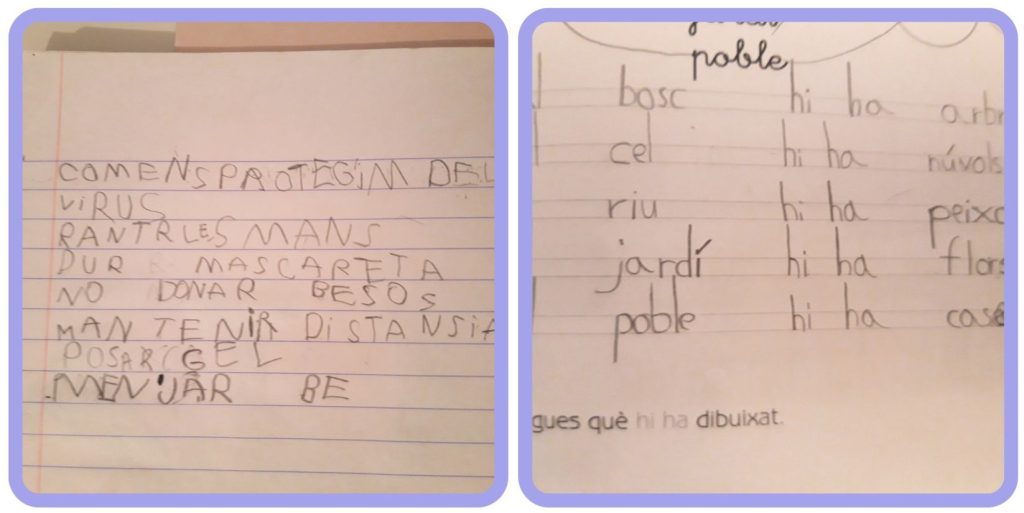 COMENS PROTEGIM DEL
VIRUS
RANTR LES MANS
DUR MASCARETA
NO DONAR BESOS
MANTENIR DISTANSIA
POSAR GEL
MENJAR BE
poble
bosc hi ha arbr
cel hi ha núvols
riu hi ha peixo
jardí hi ha flors
poble hi ha case
gues què hi ha dibuixat.